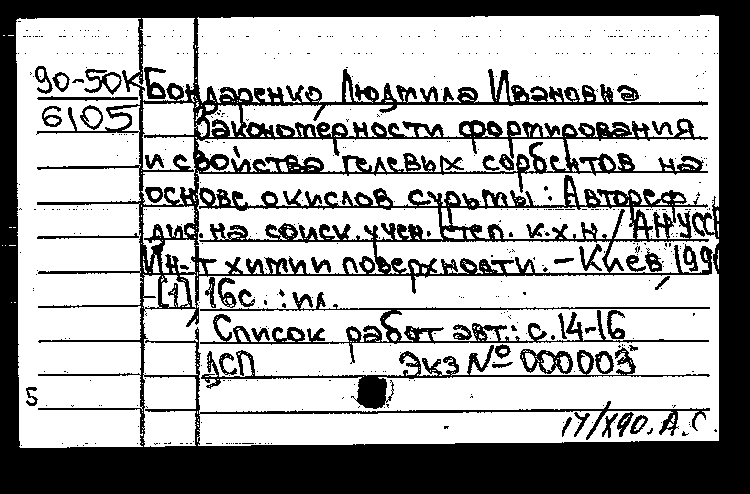 90-50К
6105
Бондаренко Людмила Ивановна
Закономерности формирования
и свойства гелевых сорбентов на
основе окислов сурьмы : Автореф.
дис. на соиск. учен. степ. к.х.н. / АН УССР
Ин-т химии поверхности. – Киев, 1990
-[1] 16с. : ил.
Список работ авт.: с.14-16
ДСП Экз № 000003
5
17/X90. А.С.